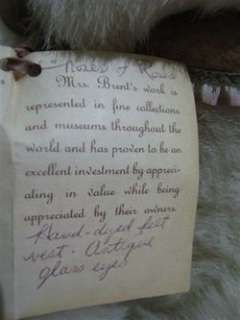 Mrs. Brent's work is
represented in fine collections
and museums throughout the
world and has proven to be an
excellent investment by appreci-
ating in value while being
appreciated by their owners.
Hand-dyed felt
vest. Antique
glass eyes